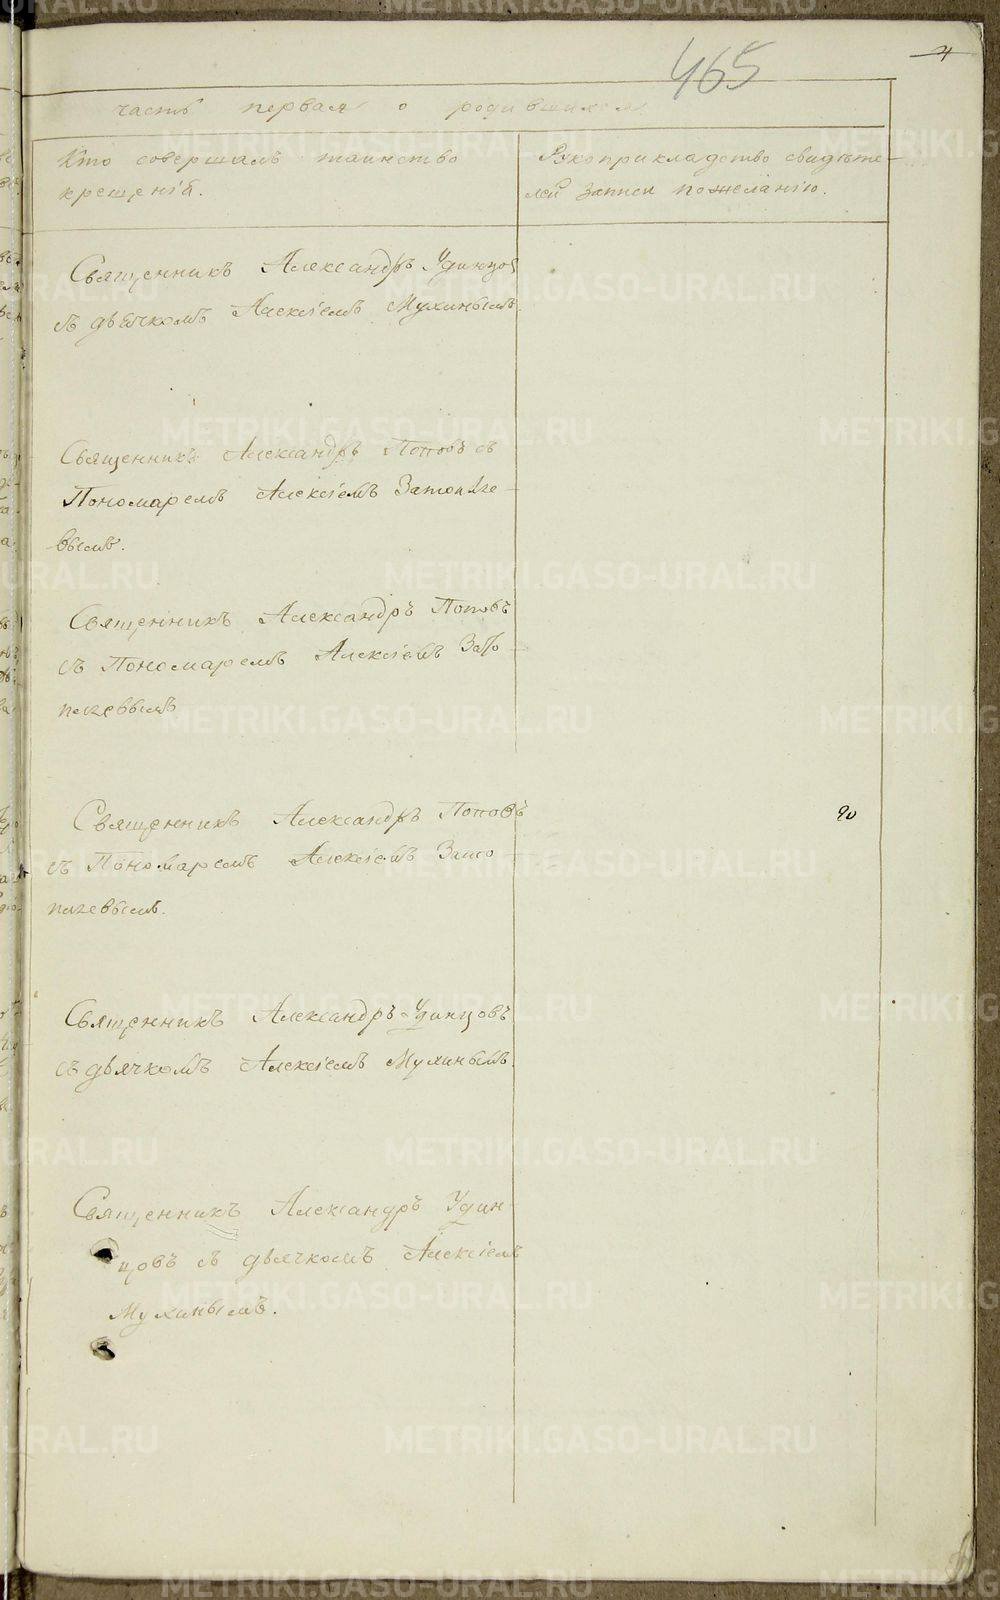 465
часть первая о родившихся
Кто совершалъ таинство
крещенія.
Рукоприкладство свидѣте-
лей записи пожеланію.
Священникъ Александръ Удинцов
съ дьячкомъ Алексіемъ Мухинымъ.
Священникъ Александръ Поповъ съ
Пономаремъ Алексіемъ Затопляе-
вымъ.
Священникъ Александръ Поповъ
съ Пономаремъ Алексіемъ Зато-
пляевымъ
Священникъ Александръ Поповъ
съ Пономаремъ Алексіемъ Зато-
пляевымъ.
Священникъ Александръ Удинцовъ
съ дьячкомъ Алексіемъ Мухинымъ.
Священникъ Александръ Удин
цовъ съ дьячкомъ Алексіемъ
Мухинымъ.
METRIKI.GASO-URAL.RU